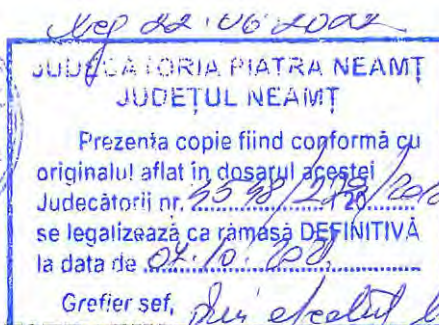 22.06.2022
JUDECĂTORIA PIATRA NEAMȚ
JUDEȚUL NEAMȚ
Prezenta copie fiind conformă cu
originalul aflat în dosarul acestei
Judecătorii nr.
se legalizează ca rămasă DEFINITIVĂ
la data de 04.10.2021
Grefier șef,